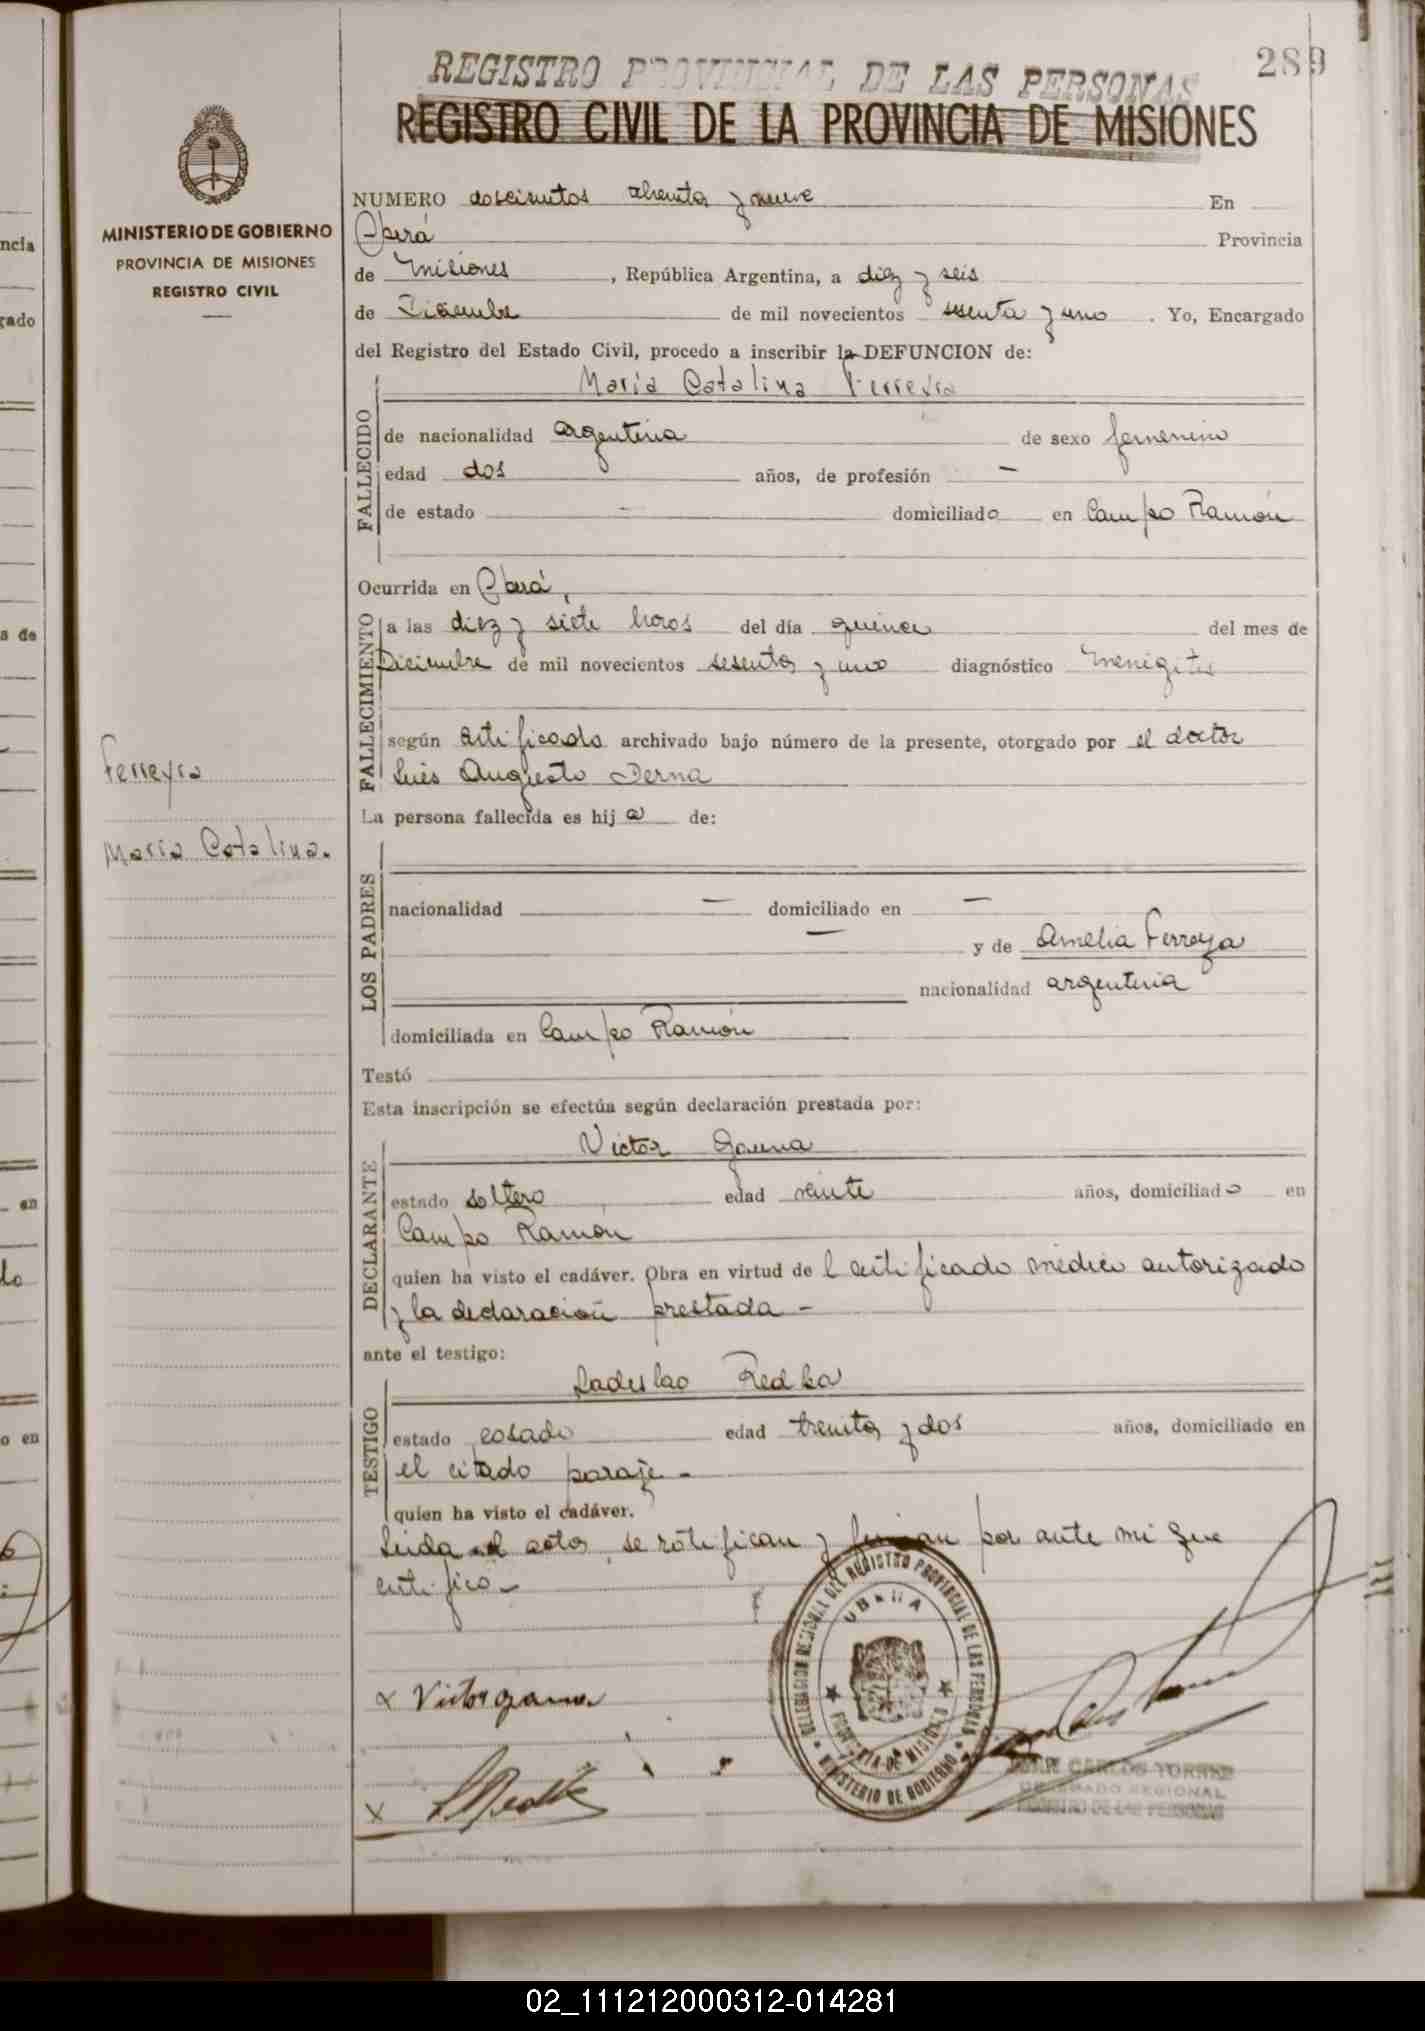 289
REGISTRO PROVINCIAL DE LAS PERSONAS
REGISTRO CIVIL DE LA PROVINCIA DE MISIONES
MINISTERIO DE GOBIERNO
PROVINCIA DE MISIONES
REGISTRO CIVIL
NUMERO doscientos ochenta y nueve En
Oberá Provincia
de Misiones, República Argentina, a diez y seis
de Diciembre de mil novecientos sesenta y uno. Yo, Encargado
del Registro del Estado Civil, procedo a inscribir la DEFUNCION de:
Maria Catalina Ferreyra
FALLECIDO
de nacionalidad argentina de sexo femenino
edad dos años, de profesión —
de estado — domiciliado en Campo Ramón
Ocurrida en Oberá,
FALLECIMIENTO
a las diez y siete horas del día quince del mes de
Diciembre de mil novecientos sesenta y uno diagnóstico Menigitis
según certificado archivado bajo número de la presente, otorgado por el doctor
Luis Augusto Derna
Ferreyra
Maria Catalina.
La persona fallecida es hija de:
LOS PADRES
nacionalidad — domiciliado en —
— y de Amelia Ferreyra
nacionalidad argentina
domiciliada en Campo Ramón
Testó
Esta inscripción se efectúa según declaración prestada por:
Victor Gauna
DECLARANTE
estado soltero edad veinte años, domiciliado en
Campo Ramón
quien ha visto el cadáver. Obra en virtud de l certificado médico autorizado
y la declaración prestada -
ante el testigo:
Ladislao Redka
TESTIGO
estado casado edad treinta y dos años, domiciliado en
el citado paraje -
quien ha visto el cadáver.
Leida el acta, se ratifican y firman por ante mi que
certifico -
DELEGACION REGIONAL DEL REGISTRO PROVINCIAL DE LAS PERSONAS
OBERA
PROVINCIA DE MISIONES
MINISTERIO DE GOBIERNO
x Victor gauna
x
JUAN CARLOS TORRES
DELEGADO REGIONAL
REGISTRO DE LAS PERSONAS
02_111212000312-014281